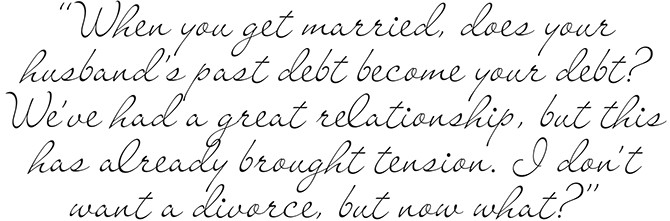 “When you get married, does your
husband's past debt become your debt?
We've had a great relationship, but this
has already brought tension. I don't
want a divorce, but now what?”